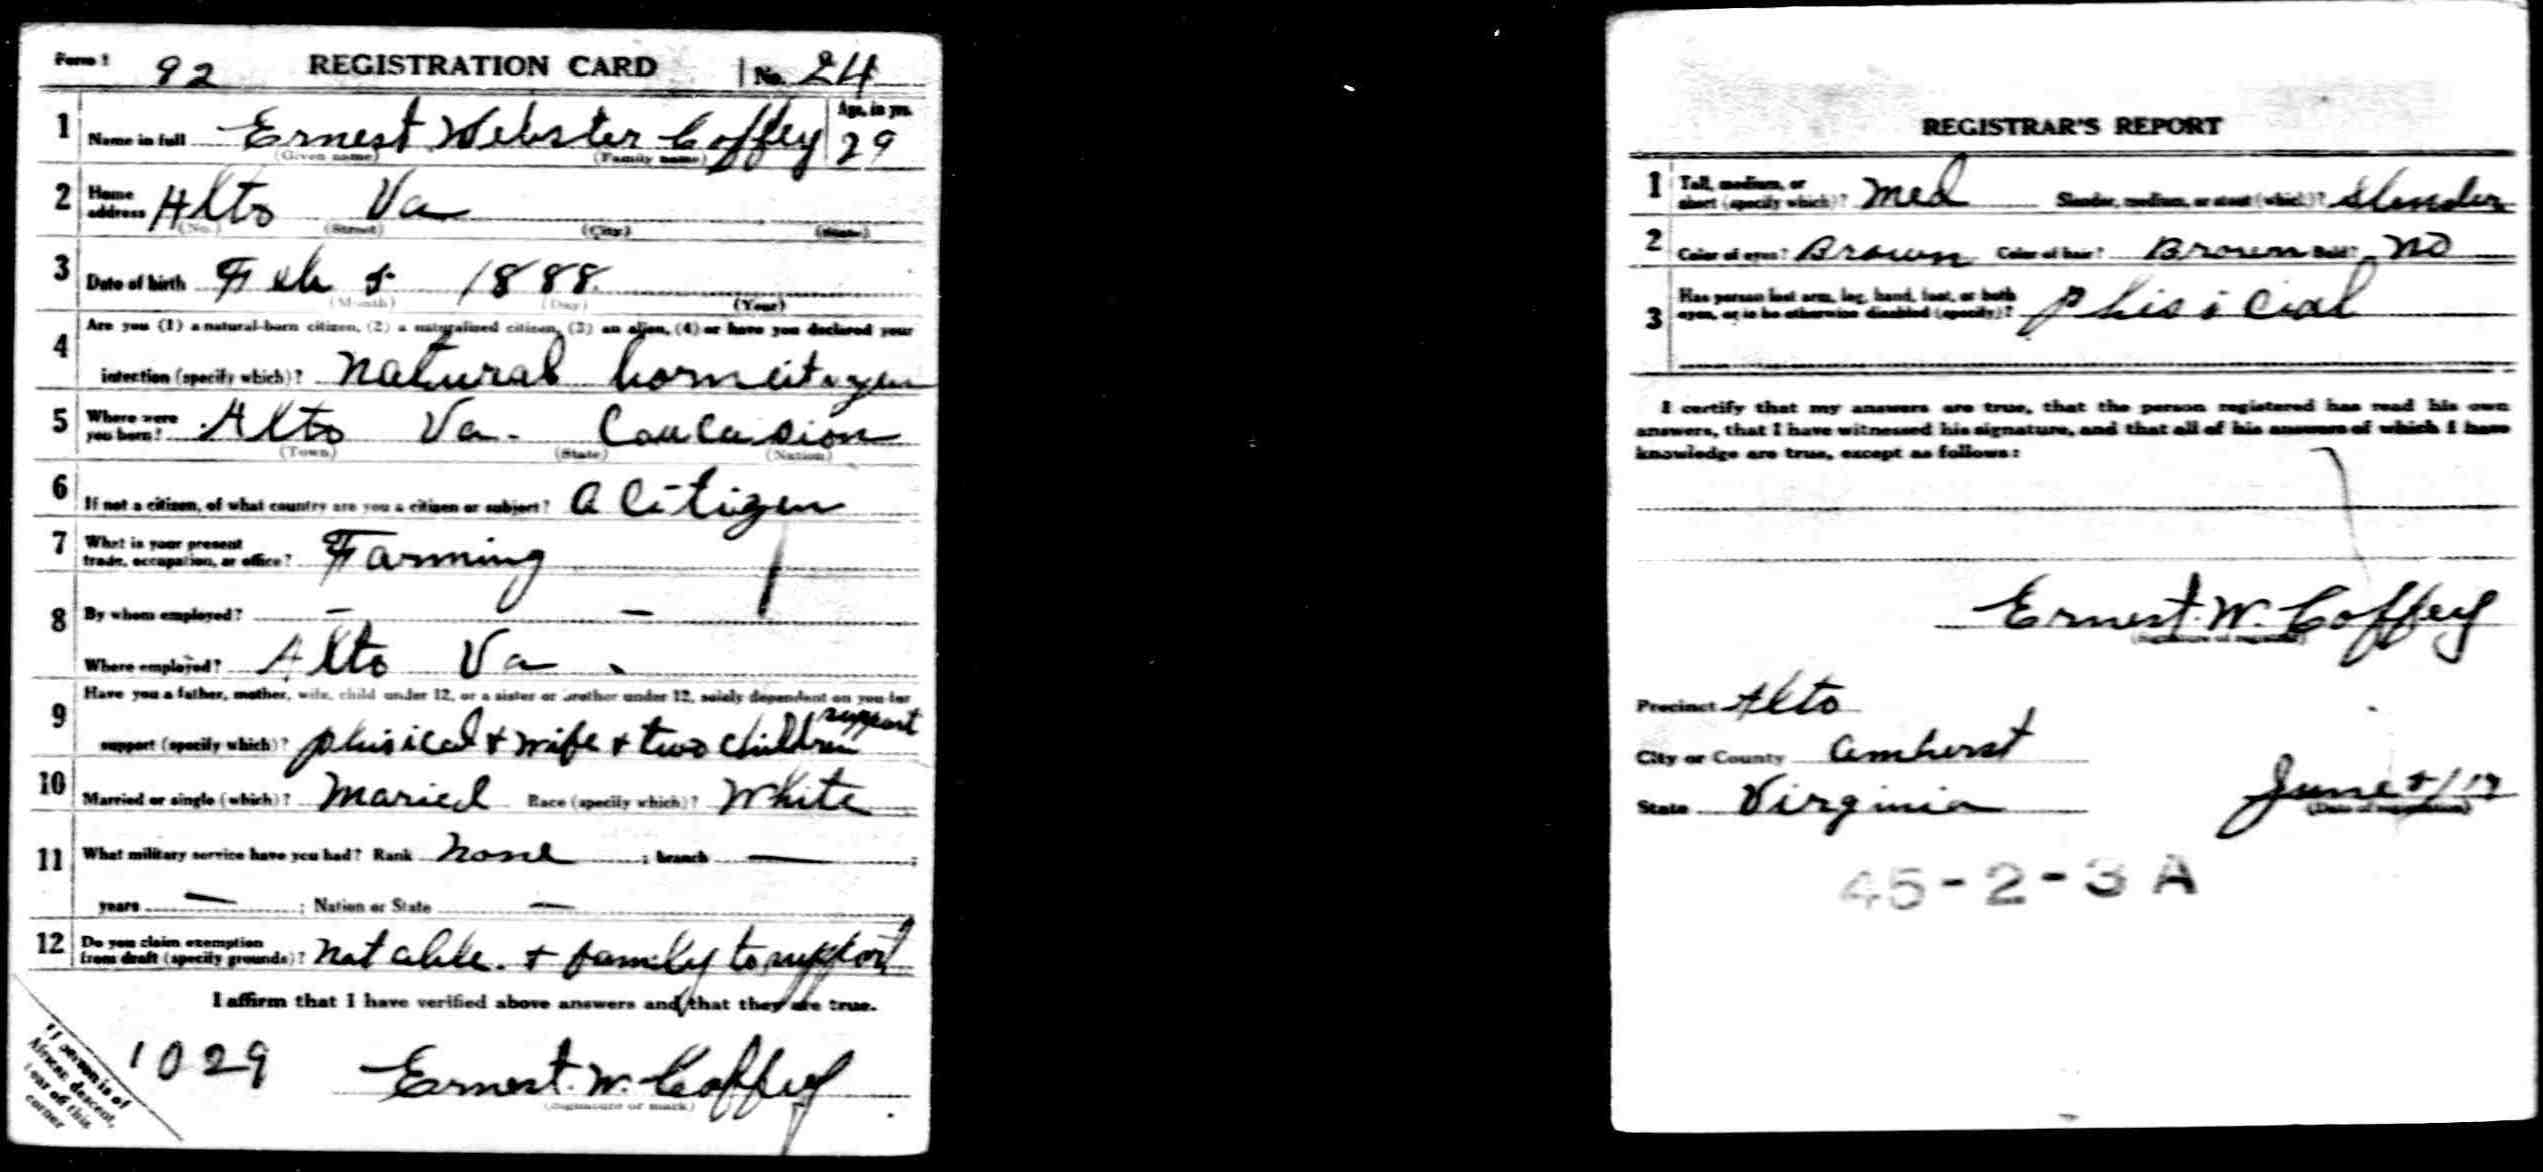 Form 1 92 REGISTRATION CARD No. 24
1 Name in full Ernest Webster Coffey Age, in yrs. 29
(Given name) (Family name)
2 Home address Alto Va
(No.) (Street) (City) (State)
3 Date of birth Feb 5 1888
(Month) (Day) (Year)
4 Are you (1) a natural-born citizen, (2) a naturalized citizen, (3) an alien, (4) or have you declared your
intention (specify which)? natural born citizen
5 Where were you born? Alto Va. Caucasion
(Town) (State) (Nation)
6 If not a citizen, of what country are you a citizen or subject? a Citizen
7 What is your present trade, occupation, or office? Farming
8 By whom employed? — —
Where employed? Alto Va
9 Have you a father, mother, wife, child under 12, or a sister or brother under 12, solely dependent on you for
support (specify which)? phisical + wife + two children support
10 Married or single (which)? Maried Race (specify which)? White
11 What military service have you had? Rank none ; branch — ;
years — ; Nation or State —
12 Do you claim exemption from draft (specify grounds)? Not able. + family to support
I affirm that I have verified above answers and that they are true.
1029 Ernest. W. Coffey
(Signature or mark)
If person is of
African descent,
tear off this
corner
REGISTRAR'S REPORT
1 Tall, medium, or short (specify which)? Med Slender, medium, or stout (which)? Slender
2 Color of eyes? Brown Color of hair? Brown Bald? No
3 Has person lost arm, leg, hand, foot, or both eyes, or is he otherwise disabled (specify)? Phisicial
I certify that my answers are true, that the person registered has read his own
answers, that I have witnessed his signature, and that all of his answers of which I have
knowledge are true, except as follows:
Ernest. W. Coffey
(Signature of registrar)
Precinct Alto
City or County Amherst
State Virginia June 5/17
(Date of registration)
45-2-3 A